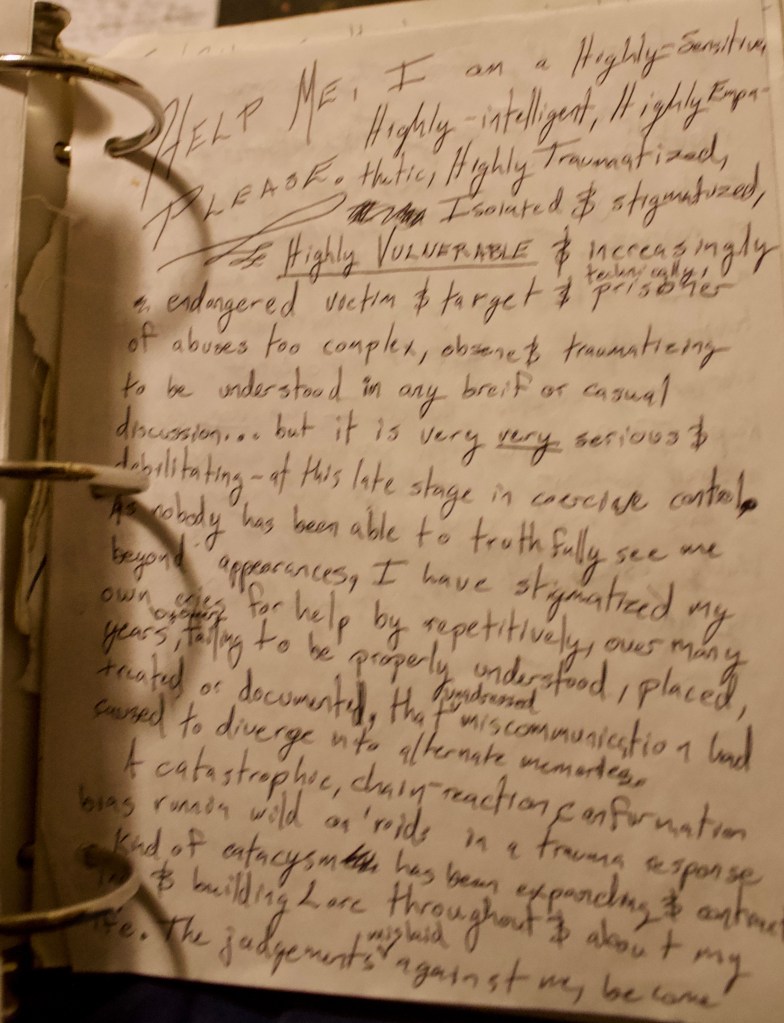 HELP ME, I am a Highly-Sensitive,
Highly-intelligent, Highly Empa-
PLEASE. thetic, Highly Traumatized,
Isolated & stigmatized,
Highly VULNERABLE & increasingly
endangered victim & target & technically, prisoner
of abuses too complex, obsene & traumaticing
to be understood in any breif or casual
discussion... but it is very very serious &
debilitating - at this late stage in coercive control.
As nobody has been able to truthfully see me
beyond appearances, I have stigmatized my
own cries for help by repetitively, over many
years, failing to be properly understood, placed,
treated or documented, that miscommunication had
caused to diverge into alternate memories.
A catastrophic, chain-reaction conformation
bias runnin wild on 'roids in a trauma response
kind of catacysm has been expanding & contract
& building Lore throughout & about my
life. The judgements mislaid against me, become